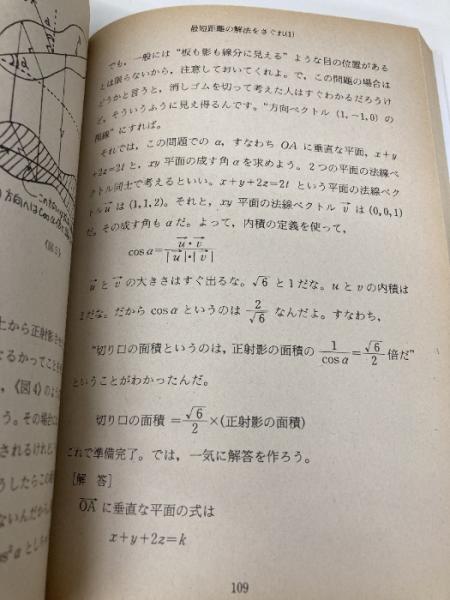 最短距離の解法をさぐれ(1)
でも,一般には“板も影も線分に見える”ような目の位置がある
とは限らないから,注意しておいてくれよ。で,この問題の場合は
どうかと言うと,消しゴムを切って考えた人はすぐわかるだろうけ
ど,そういうふうに見え得るんです。“方向ベクトル (1, −1, 0) の
視線”にすれば。
それでは,この問題での α,すなわち OA に垂直な平面,x+y
+2z=2t と,xy 平面の成す角 α を求めよう。2つの平面の法線ベ
クトル同士で考えるといい。x+y+2z=2t という平面の法線ベク
トル u は (1, 1, 2)。それと,xy 平面の法線ベクトル v は (0, 0, 1)
だ。その成す角も α だ。よって,内積の定義を使って,
cos α = u・v / |u|・|v|
u と v の大きさはすぐ出るな。√6 と1だな。u と v の内積は
2だな。だから cos α というのは 2/√6 なんだよ。すなわち,
“切り口の面積というのは,正射影の面積の 1/cos α = √6/2 倍だ”
ということがわかったんだ。
切り口の面積 = √6/2 ×(正射影の面積)
これで準備完了。では,一気に解答を作ろう。
[解 答]
OA に垂直な平面の式は
x+y+2z=k
109